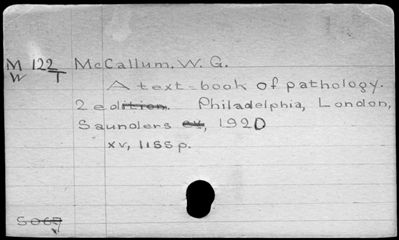 M 122 McCallum, W. G.
W T
A text-book of pathology.
2 edition. Philadelphia, London,
Saunders, 1920
xv, 1155 p.